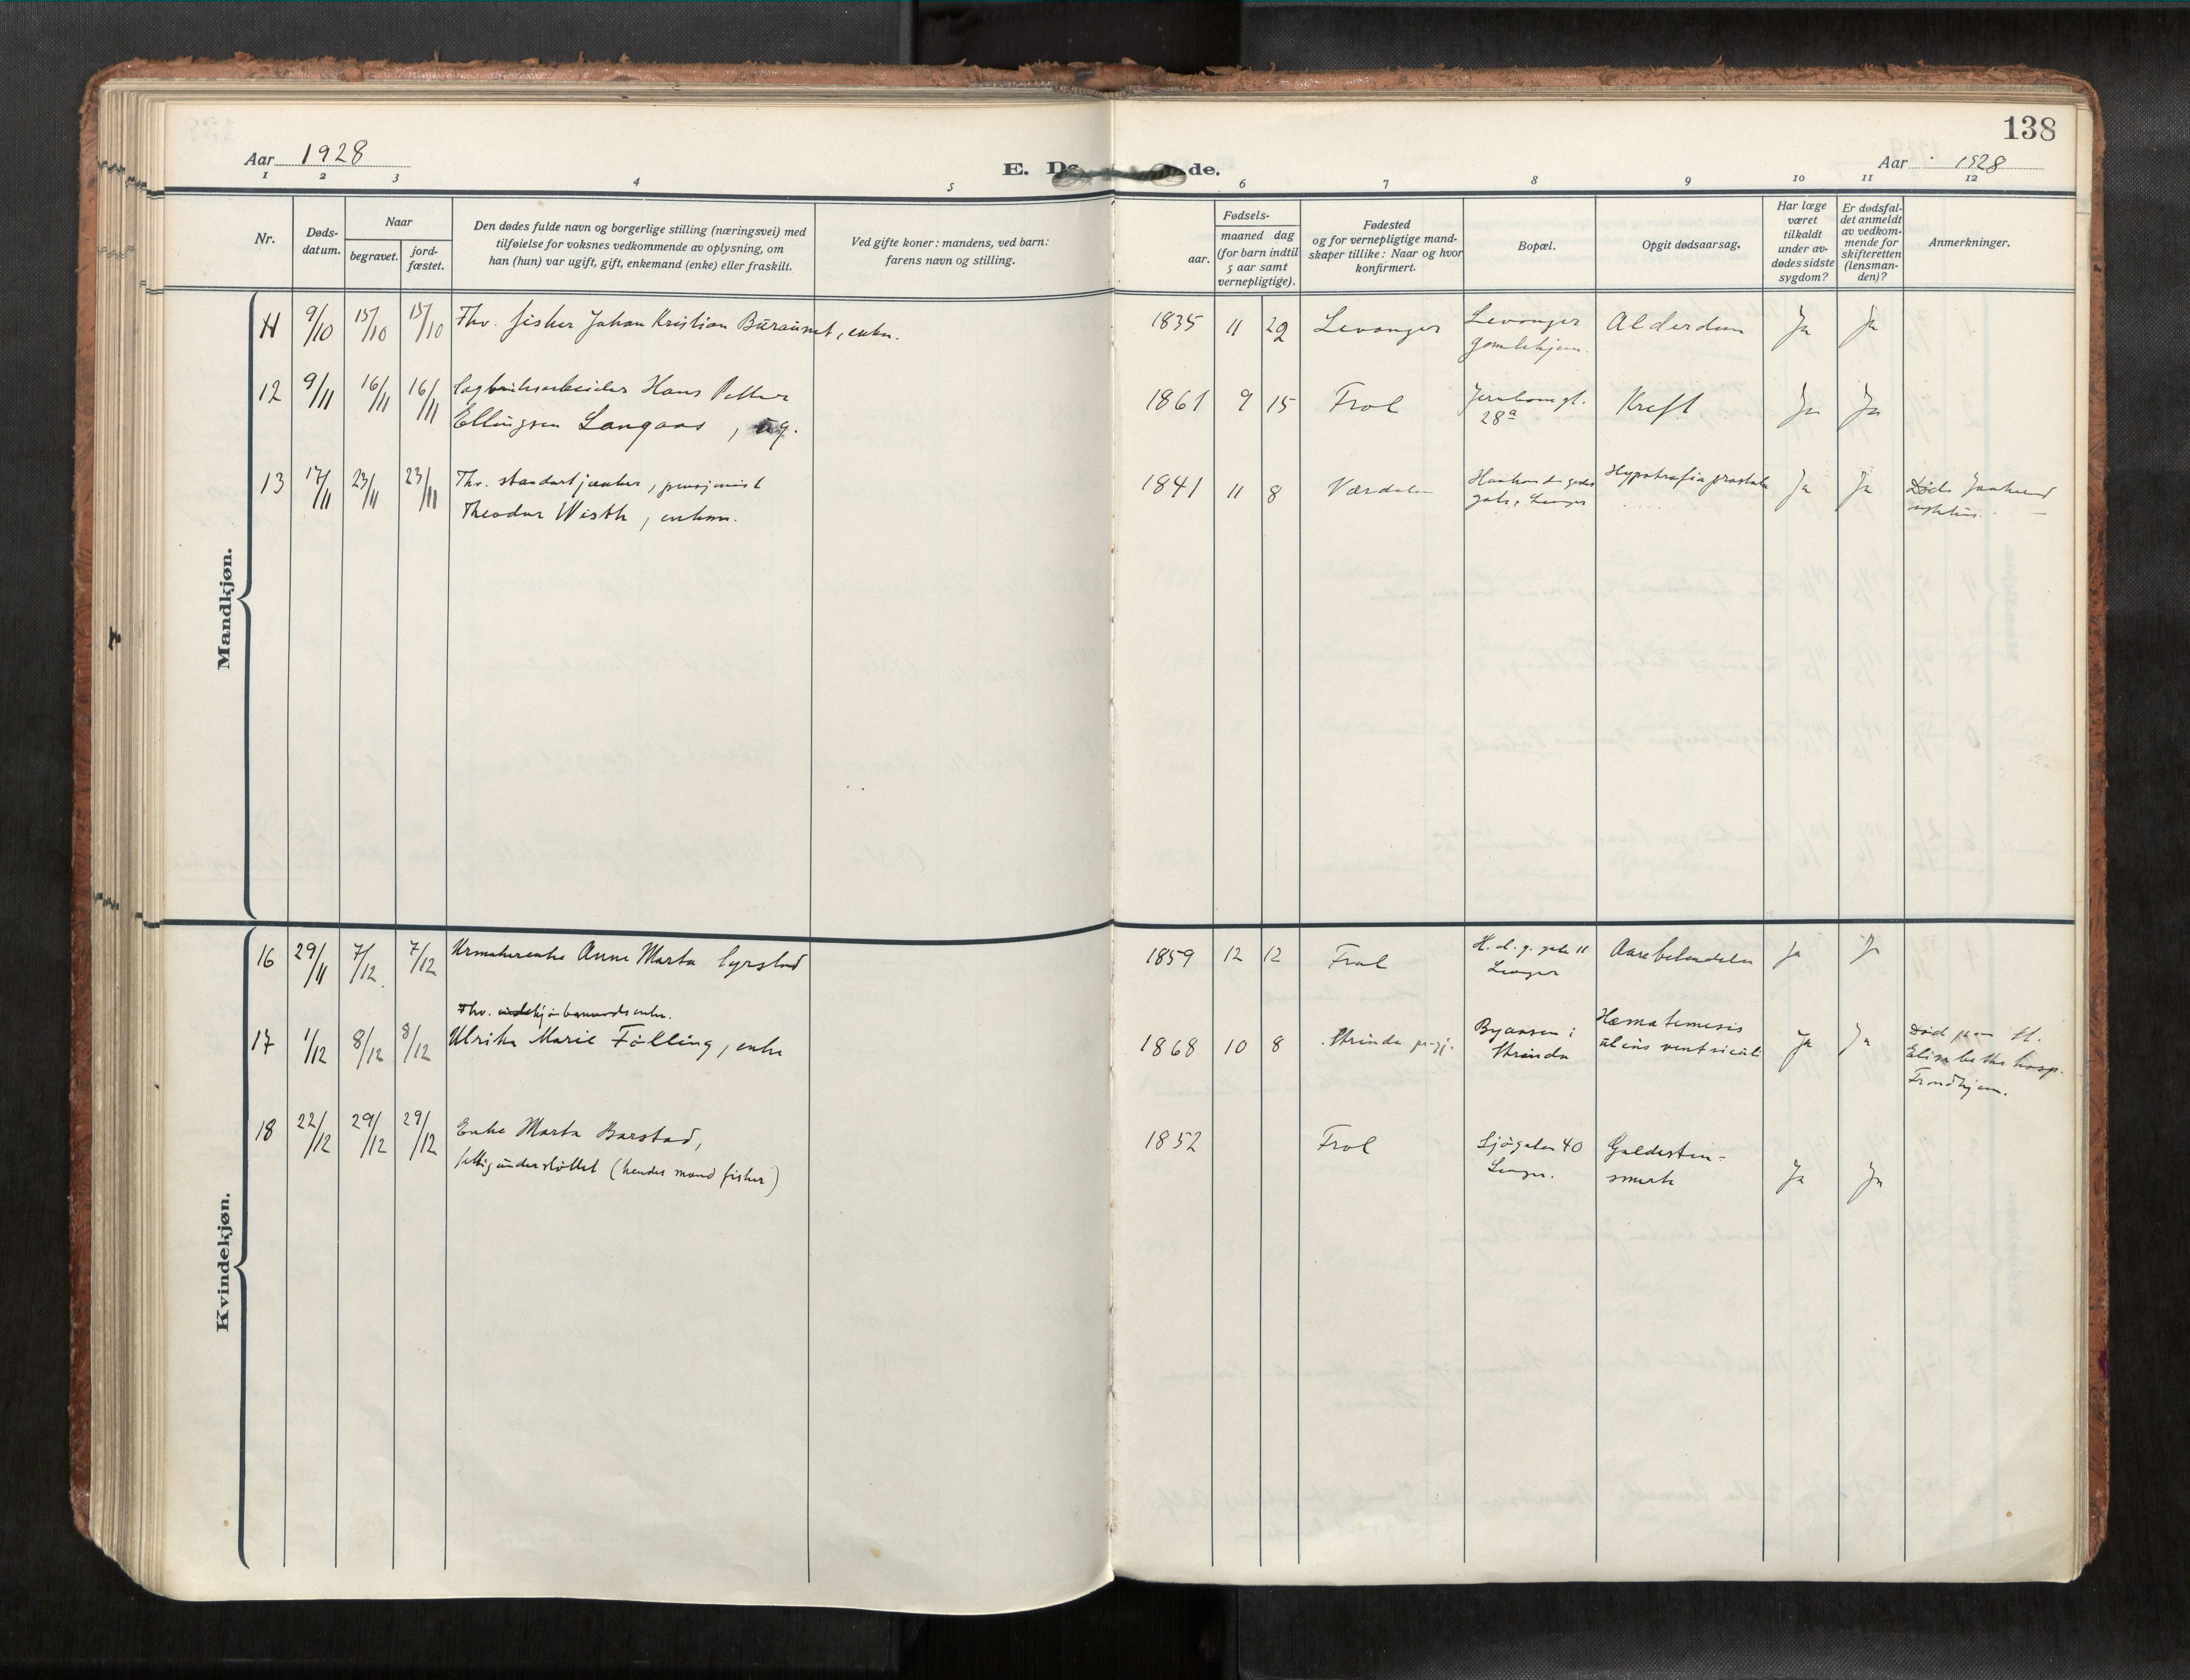 138
Aar 1928
E. De de.
Aar 1928
1 2 3 4 5 6 7 8 9 10 11 12
Nr.
Døds-
datum.
Naar
begravet.
jord-
fæstet.
Den dødes fulde navn og borgerlige stilling (næringsvei) med
tilføielse for voksnes vedkommende av oplysning, om
han (hun) var ugift, gift, enkemand (enke) eller fraskilt.
Ved gifte koner: mandens, ved barn:
farens navn og stilling.
Fødsels-
aar.
maaned dag
(for barn indtil
5 aar samt
vernepligtige).
Fødested
og for vernepligtige mand-
skaper tillike: Naar og hvor
konfirmert.
Bopæl.
Opgit dødsaarsag.
Har læge
været
tilkaldt
under av-
dødes sidste
sygdom?
Er dødsfal-
det anmeldt
av vedkom-
mende for
skifteretten
(lensman-
den)?
Anmerkninger.
Mandkjøn.
11 9/10 15/10 15/10 Fhv. fisker Johan Kristian , enkm. 1835 11 29 Levanger Levanger Alderdom Ja Ja
Gamlehjem.
12 9/11 16/11 16/11 Hans Petter 1861 9 15 Frol Kreft Ja Ja
Ellingsen Langaas, ug. 28a
13 17/11 23/11 23/11 Fhv. , pensjonist 1841 11 8 Værdalen Ja Ja
Theodor Wisth, enkem.
Kvindekjøn.
16 29/11 7/12 7/12 Urmakerenke Anne Marta 1859 12 12 Frol H. d. g. gate 11 Ja Ja
Fhv.
17 1/12 8/12 8/12 Ulrikke Marie Følling, enke 1868 10 8 Strinda Byaasen i Hæmatemesis Ja Ja Død paa St.
Strinda ulcus ventriculi Elisabeths hosp.
Trondhjem.
18 22/12 29/12 29/12 Enke Marta Barstad, 1852 Frol Sjøgaten 40 Galdesten- Ja Ja
fattigunderstøttet (hendes mand fisker) smerte